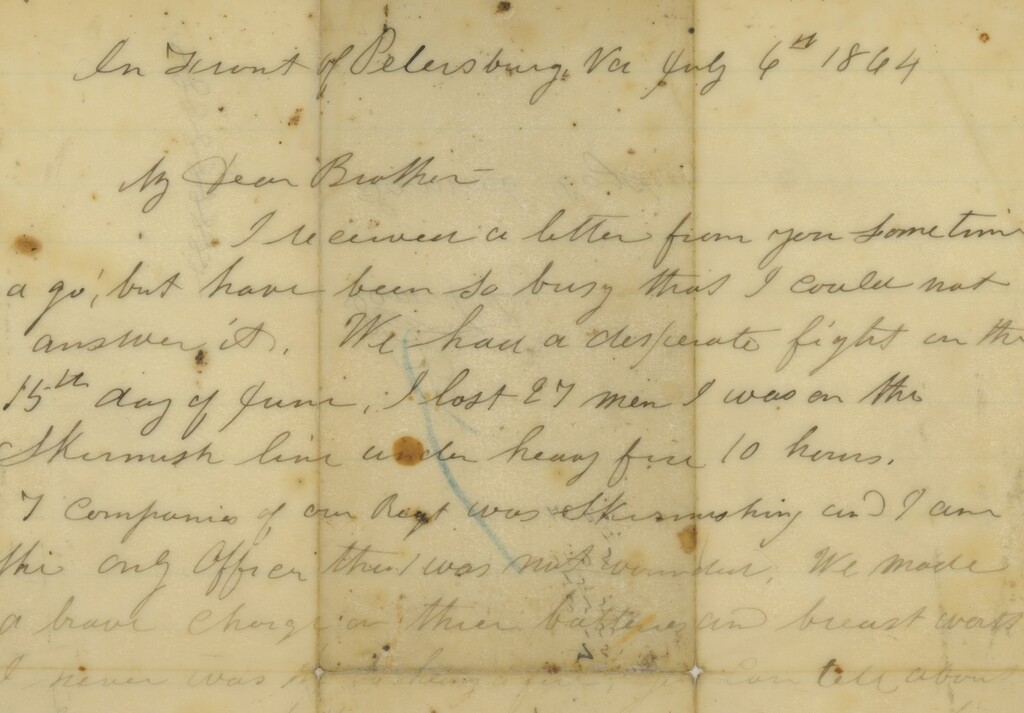 In Front of Petersburg, Va July 6th 1864
My Dear Brother
I received a letter from you sometim
a go, but have been so busy that I could not
answer it. We had a desperate fight on the
15th day of June, I lost 27 men I was on the
Skirmish line under heavy fire 10 hours.
7 Companies of our Regt was Skirmishing and I am
the only Officer that was not wounded. We made
a brave charge on thier batteries and breast works
I never was a can tell about